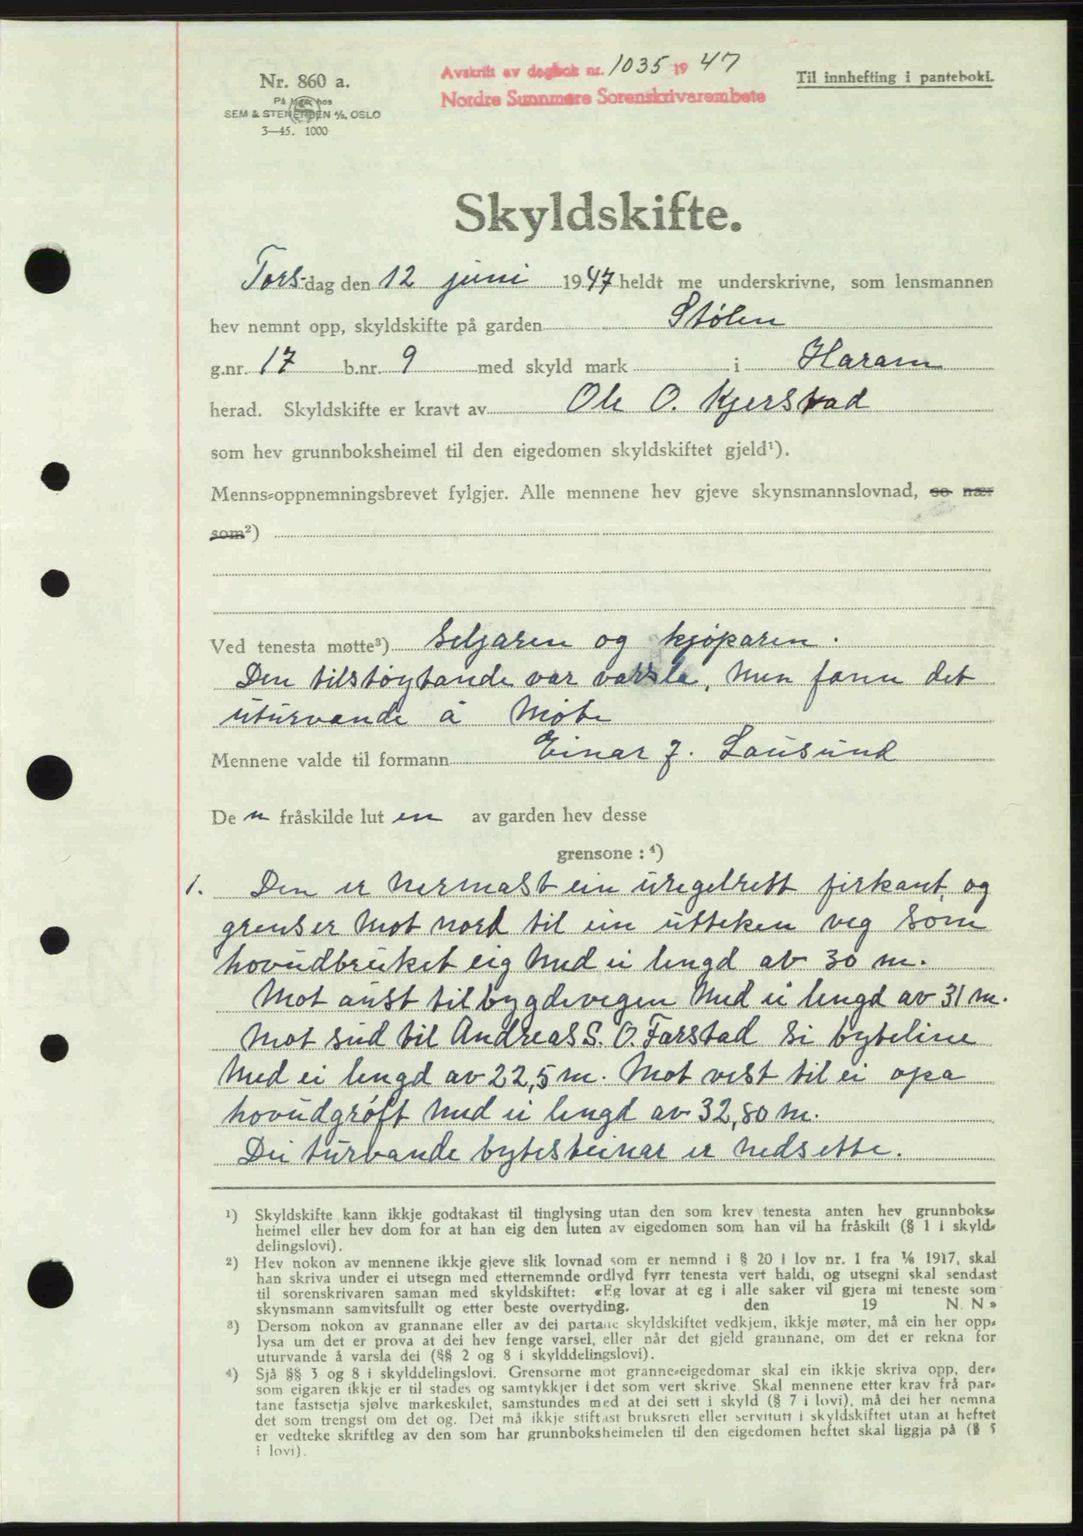 Nr. 860 a.
På lager hos
SEM & STENERSEN A/S, OSLO
3—45. 1000
Avskrift av dagbok nr. 1035 19 47
Nordre Sunnmøre Sorenskrivarembete
Til innhefting i panteboki.
Skyldskifte.
Tors-dag den 12 juni 1947 heldt me underskrivne, som lensmannen
hev nemnt opp, skyldskifte på garden Stølen
g.nr. 17 b.nr. 9 med skyld mark i Haram
herad. Skyldskifte er kravt av Ole O. Kjerstad
som hev grunnboksheimel til den eigedomen skyldskiftet gjeld¹).
Menns-oppnemningsbrevet fylgjer. Alle mennene hev gjeve skynsmannslovnad, so nær
som²)
Ved tenesta møtte³) Seljaren og kjøparen.
Den tilstøytande var varsla, men fann det
uturvande å møte
Mennene valde til formann Einar J. Lausund
De n fråskilde lut en av garden hev desse
grensone : ⁴)
1. Den er nermast ein uregelrett firkant, og
grenser mot nord til ein utteken veg som
hovudbruket eig med ei lengd av 30 m.
Mot aust til bygdevegen med ei lengd av 31 m.
Mot sud til Andreas S. O. Farstad si byteline
med ei lengd av 22,5 m. Mot vest til ei opa
hovudgrøft med ei lengd av 32,80 m.
Dei turvande bytesteinar er nedsette.
¹) Skyldskifte kann ikkje godtakast til tinglysing utan den som krev tenesta anten hev grunnboks-
heimel eller hev dom for at han eig den luten av eigedomen som han vil ha fråskilt (§ 1 i skyld-
delingslovi).
²) Hev nokon av mennene ikkje gjeve slik lovnad som er nemnd i § 20 i lov nr. 1 fra ¹/₆ 1917, skal
han skriva under ei utsegn med etternemnde ordlyd fyrr tenesta vert haldi, og utsegni skal sendast
til sorenskrivaren saman med skyldskiftet: «Eg lovar at eg i alle saker vil gjera mi teneste som
skynsmann samvitsfullt og etter beste overtyding. den 19 N. N»
³) Dersom nokon av grannane eller av dei partane skyldskiftet vedkjem, ikkje møter, må ein her opp-
lysa um det er prova at dei hev fenge varsel, eller når det gjeld grannane, om det er rekna for
uturvande å varsla dei (§§ 2 og 8 i skylddelingslovi).
⁴) Sjå §§ 3 og 8 i skylddelingslovi. Grensorne mot granne-eigedomar skal ein ikkje skriva opp, der-
som eigaren ikkje er til stades og samtykkjer i det som vert skrive. Skal mennene etter krav frå par-
tane fastsetja sjølve markeskilet, samstundes med at dei sett i skyld (§ 7 i lovi), må dei her nemna
det som trengst om det og. Det må ikkje stiftast bruksrett eller servitutt i skyldskiftet utan at heftet
er vedteke skriftleg av den som har grunnboksheimelen til den eigedomen heftet skal liggja på (§ 5
i lovi).